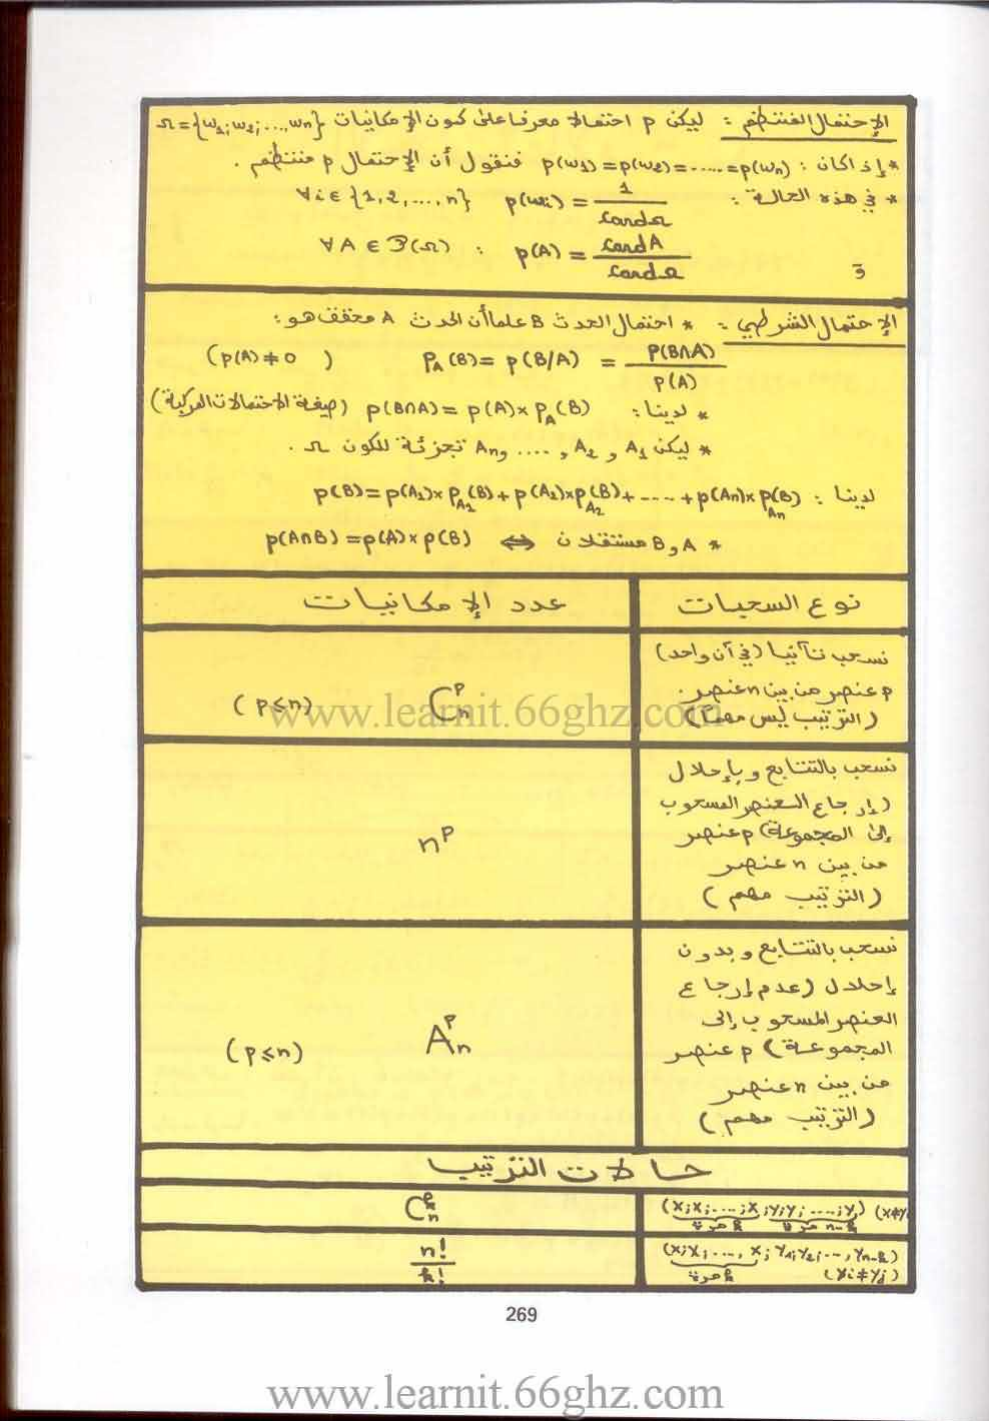 الاحتمال المنتظم : ليكن p احتمالا معرفا على كون الإمكانيات Ω={w₁;w₂;...,wₙ}
* إذا كان : p(w₁)=p(w₂)=.....=p(wₙ) فنقول أن الإحتمال p منتظم .
* في هذه الحالة : p(wᵢ) = 1/cardΩ ∀i∈{1,2,...,n}
و p(A) = cardA/cardΩ : ∀A∈P(Ω)
الإحتمال الشرطي : * احتمال الحدث B علما أن الحدث A محقق هو :
P_A(B) = p(B/A) = P(B∩A)/p(A) (p(A)≠0)
* لدينا : p(B∩A) = p(A)×P_A(B) (صيغة الاحتمالات المركبة)
* ليكن A₁ و A₂ , .... و Aₙ تجزئة للكون Ω .
لدينا : p(B)=p(A₁)×P_A₁(B)+p(A₂)×P_A₂(B)+----+p(Aₙ)×P_Aₙ(B)
* A و B مستقلان ⇔ p(A∩B)=p(A)×p(B)
نوع السحبات عدد الإمكانيات
نسحب تآنيا (في آن واحد)
p عنصر من بين n عنصر .
(الترتيب ليس مهما)
Cₙᵖ (p≤n)
نسحب بالتتابع و بإحلال
(إرجاع العنصر المسحوب
إلى المجموعة) p عنصر
من بين n عنصر
(الترتيب مهم)
nᵖ
نسحب بالتتابع و بدون
إحلال (عدم إرجاع
العنصر المسحوب إلى
المجموعة) p عنصر
من بين n عنصر
(الترتيب مهم)
Aₙᵖ (p≤n)
حالات الترتيب
(x;x;....;x;y;y;....;y) (x≠y
k مرة n-k مرة
Cₙᵏ
(x;x;....,x;y₁;y₂;...,yₙ₋ₖ)
k مرة (yᵢ≠yⱼ)
n!/k!
269
www.learnit.66ghz.com
www.learnit.66ghz.com